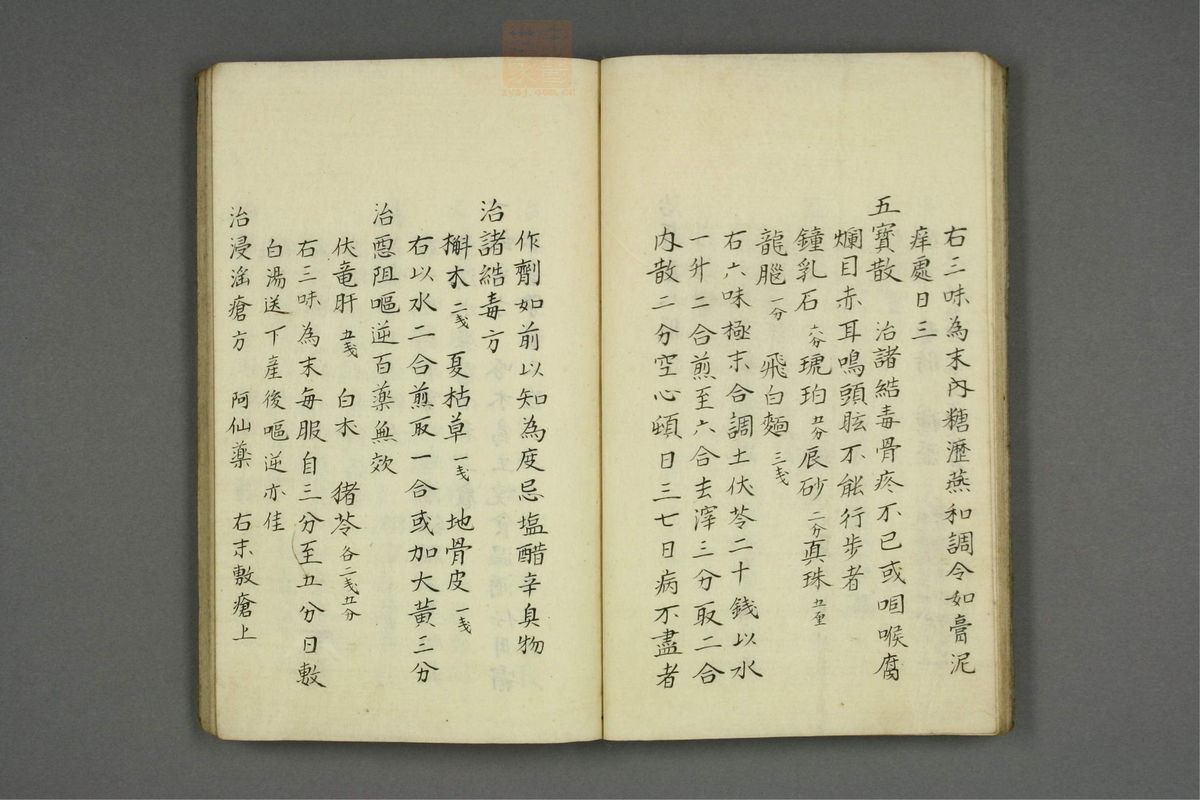 右三味為末內糖瀝燕和調令如膏泥
痒處日三
五寶散　治諸結毒骨疼不已或咽喉腐
爛目赤耳鳴頭眩不能行步者
鐘乳石 六分 琥珀 五分 辰砂 二分 真珠 五厘
龍腦 一分　飛白麵 三戔
右六味極末合調土伏苓二十錢以水
一升二合煎至六合去滓三分取二合
内散二分空心頓日三七日病不盡者
作劑如前以知為度忌塩醋辛臭物
治諸結毒方
槲木 二戔　夏枯草 一戔　地骨皮 一戔
右以水二合煎取一合或加大黃三分
治悪阻嘔逆百薬無效
伏竜肝 五戔　白朮　猪苓 各二戔五分
右三味為末毎服自三分至五分日數
白湯送下産後嘔逆亦佳
治浸淫瘡方　阿仙薬　右末敷瘡上
zysj.com.cn